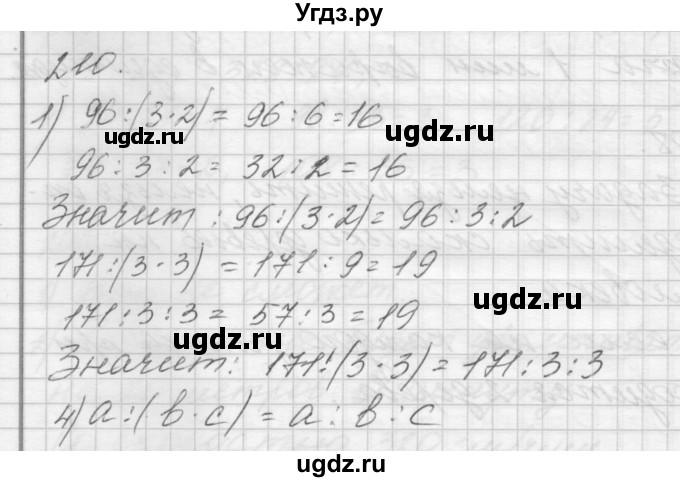 Угдз.ру
210.
1) 96:(3·2) = 96:6=16
96:3:2= 32:2=16
Значит: 96:(3·2)= 96:3:2
171:(3·3) = 171:9=19
171:3:3= 57:3=19
Значит: 171:(3·3)=171:3:3
4) a:(b·c)=a:b:c
ugdz.ru
ugdz.ru
ugdz.ru
ugdz.ru
ugdz.ru
ugdz.ru
ugdz.ru
ugdz.ru